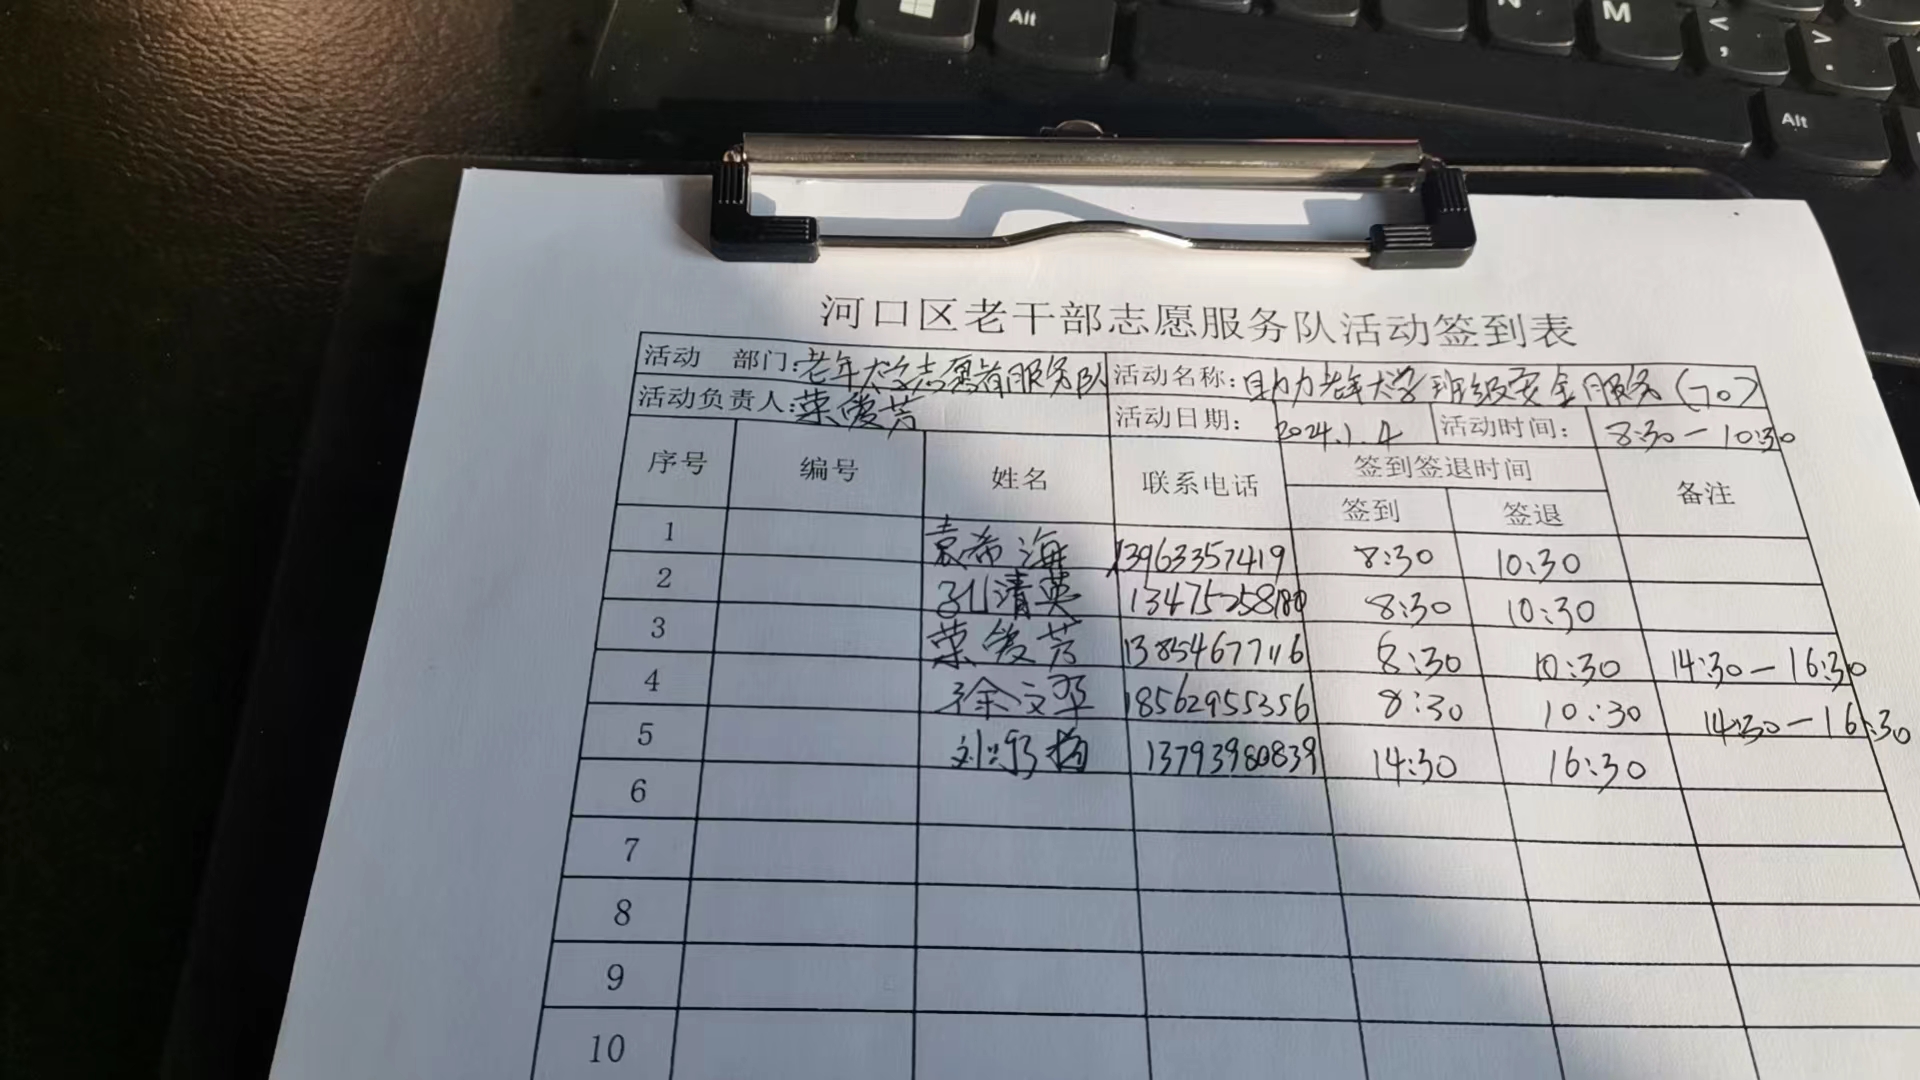 Alt
N
M
<
,
>
.
Alt
河口区老干部志愿服务队活动签到表
活动 部门:老年大学志愿者服务队 活动名称:助力老年大学班级安全服务(70)
活动负责人:荣爱芳 活动日期: 2024.1.4 活动时间: 8:30-10:30
序号 编号 姓名 联系电话 签到签退时间 备注
签到 签退
1 袁希海 13963357419 8:30 10:30
2 孔清英 13475258180 8:30 10:30
3 荣爱芳 13854677116 8:30 10:30 14:30-16:30
4 徐文华 18562955356 8:30 10:30 14:30-16:30
5 刘 梅 13793980839 14:30 16:30
6
7
8
9
10